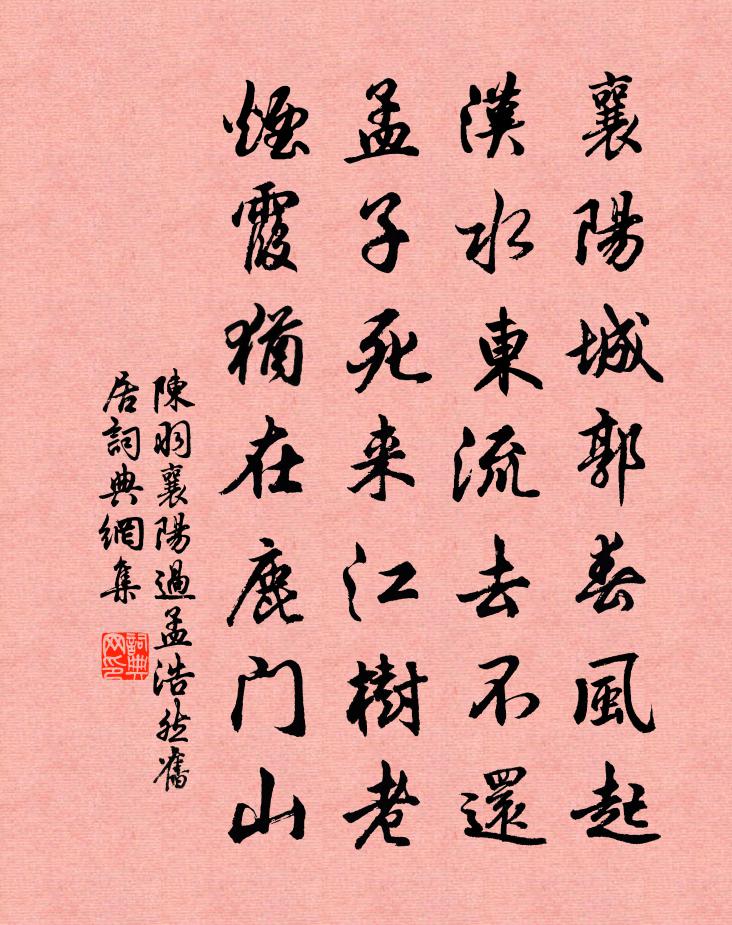 襄陽城郭春風起
漢水東流去不還
孟子死来江樹老
煙霞猶在鹿門山
陳羽襄陽過孟浩然舊
居詞典網集
詞典
网印